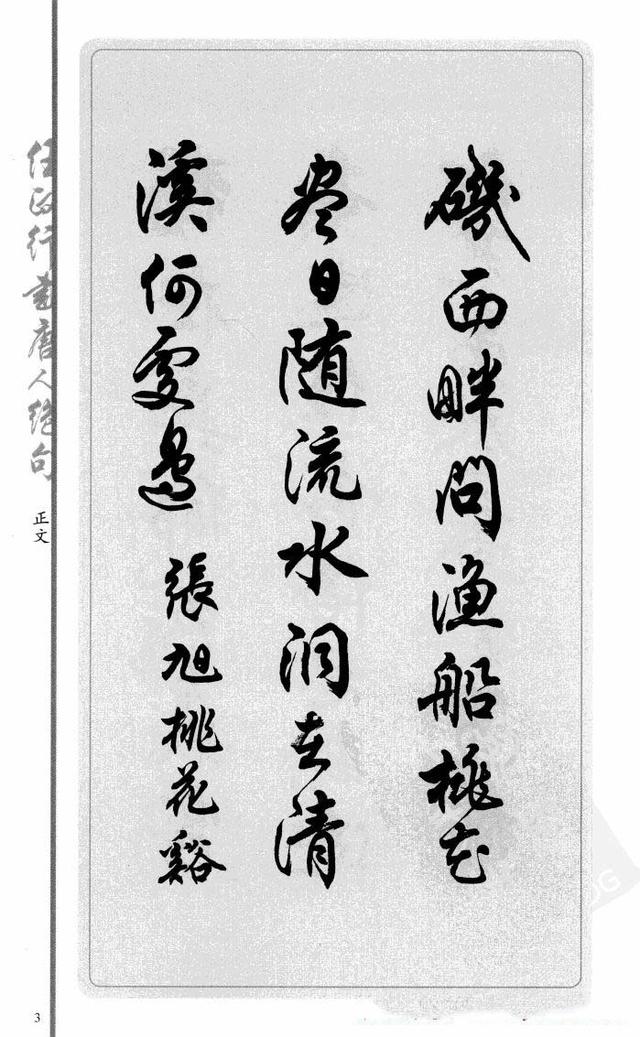 磯西畔問漁船桃花
尽日随流水洞在清
溪何處邊 張旭桃花谿
任政行書唐人绝句
正文
3